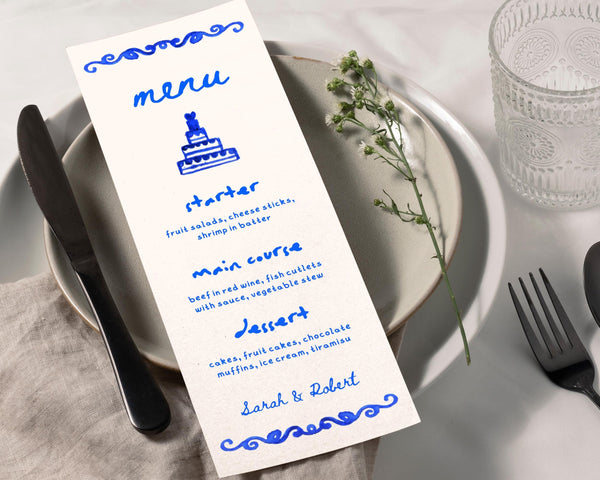 menu
starter
fruit salads, cheese sticks,
shrimp in batter
main course
beef in red wine, fish cutlets
with sauce, vegetable stew
dessert
cakes, fruit cakes, chocolate
muffins, ice cream, tiramisu
Sarah & Robert